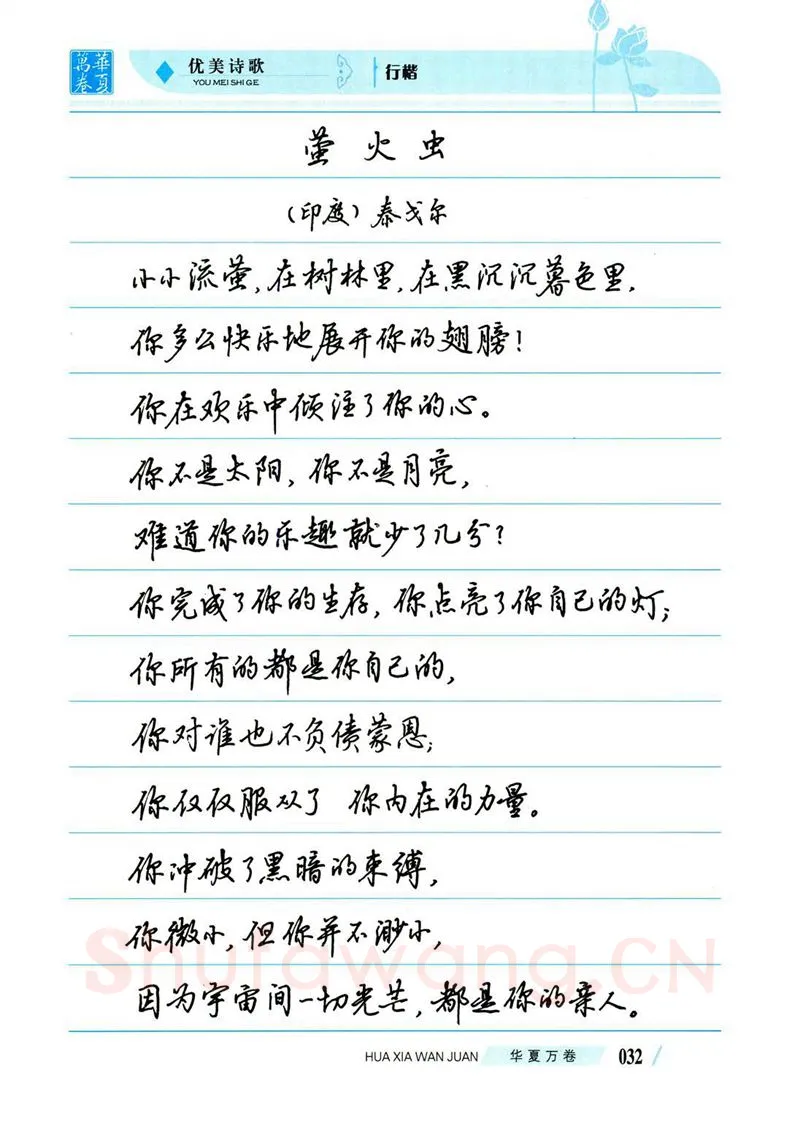 華夏萬卷
优美诗歌
YOU MEI SHI GE
行楷
萤火虫
（印度）泰戈尔
小小流萤，在树林里，在黑沉沉暮色里，
你多么快乐地展开你的翅膀！
你在欢乐中倾注了你的心。
你不是太阳，你不是月亮，
难道你的乐趣就少了几分？
你完成了你的生存，你点亮了你自己的灯；
你所有的都是你自己的，
你对谁也不负债蒙恩；
你仅仅服从了 你内在的力量。
你冲破了黑暗的束缚，
你微小，但你并不渺小，
因为宇宙间一切光芒，都是你的亲人。
Shufawang.CN
HUA XIA WAN JUAN
华夏万卷
032